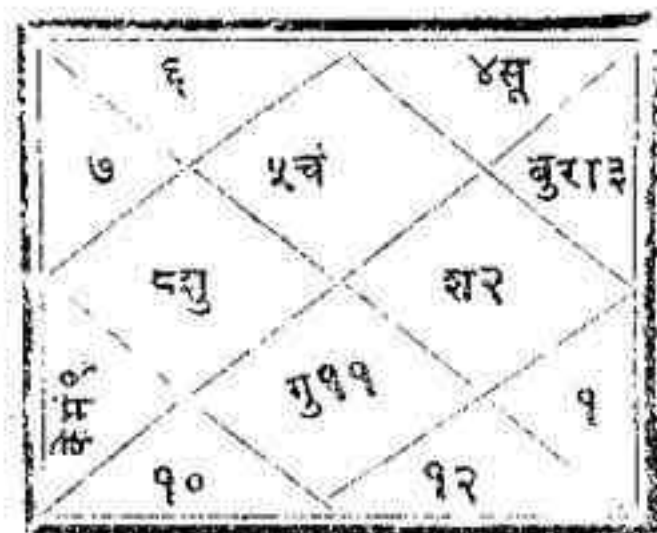 ६ ४सू
७ ५चं बुरा३
८शु श२
के मं ९ गु११ १
१० १२